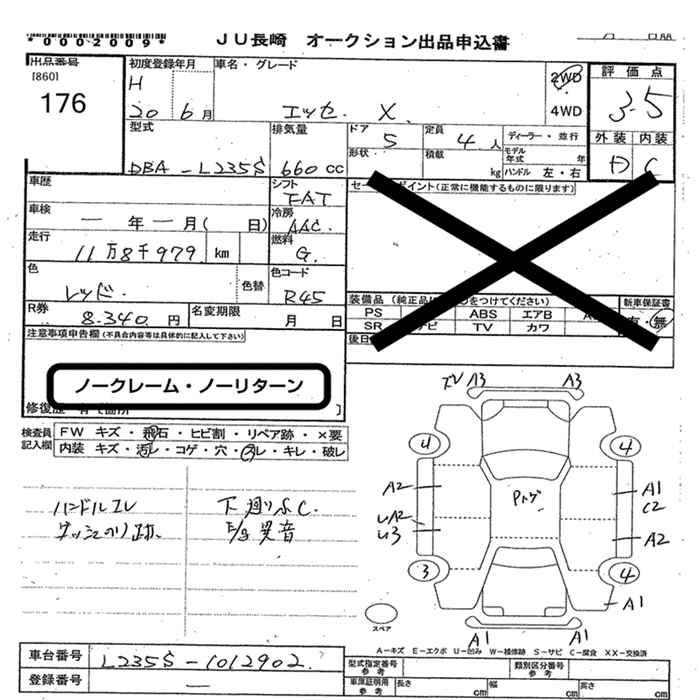 *0002009*
JU長崎 オークション出品申込書
出品番号
[860]
176
初度登録年月
H
20 6月
車名・グレード
エッセ X
2WD
4WD
評価点
3.5
外装 内装
D C
型式
DBA-L235S
排気量
660cc
ドア
5
形状
定員
4人
積載
kg
ディーラー・並行
モデル年式 年
ハンドル 左・右
車歴
シフト
FAT
車検
ー年ー月( 日)
冷房
AAC
走行
11万8千979 km
燃料
G
色
レッド
色替
色コード
R45
R券
8,340円
名変期限
月 日
装備品
PS
ABS エアB
SR
TV カワ
新車保証書
有・無
注意事項申告欄(不具合内容等は具体的に記入して下さい)
ノークレーム・ノーリターン
検査員記入欄
FW キズ・飛石・ヒビ割・リペア跡・×要
内装 キズ・汚れ・コゲ・穴・スレ・キレ・破レ
ハンドルスレ
ダッシュのり跡
下廻りふC.
E/g異音
A3
A3
4
4
A2
Pトゲ
A1
C2
A2
A2
3
4
A1
A1
A1
スペア
A-キズ E-エクボ U-凹み W-補修跡 S-サビ C-腐食 XX-交換済
車台番号
L235S-1012902
登録番号
ー
型式指定番号
参考
類別区分番号
参考
車庫証明用
参考
長さ
cm
幅
cm
高さ
cm